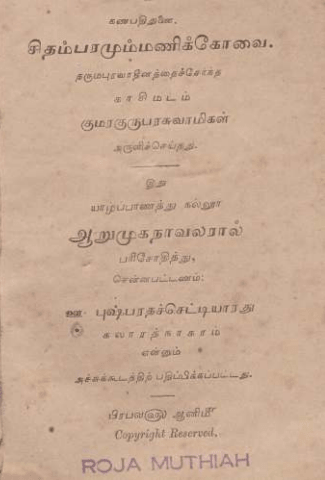 கணபதிதுணை.
சிதம்பரமும்மணிக்கோவை.
தருமபுரவாதீனத்தைச்சேர்ந்த
காசிமடம்
குமரகுருபரசுவாமிகள்
அருளிச்செய்தது.
இது
யாழ்ப்பாணத்து நல்லூர்
ஆறுமுகநாவலரால்
பரிசோதித்து,
சென்னபட்டணம்:
ஊ. புஷ்பரதச்செட்டியாரது
கலாரத்நாகரம்
என்னும்
அச்சுக்கூடத்திற் பதிப்பிக்கப்பட்டது.
ஆனிமீ
Copyright Reserved,
ROJA MUTHIAH